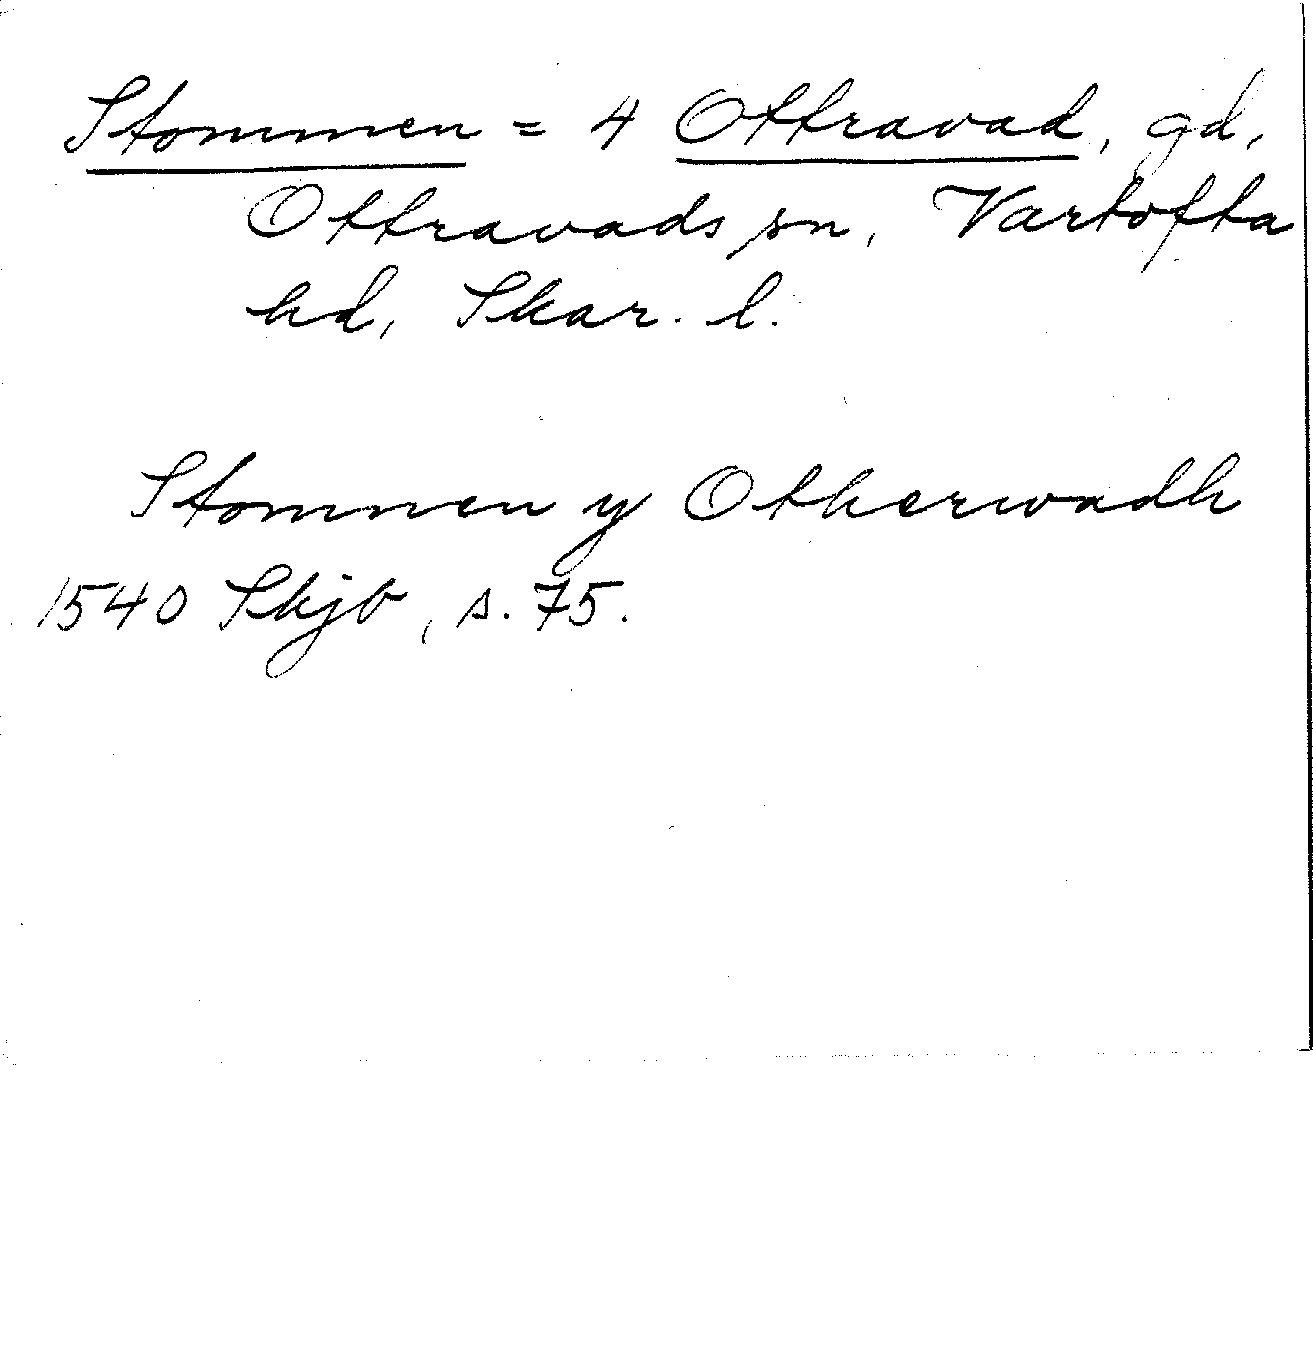 Stommen = 4 Ottravad, gd,
Ottravads sn, Vartofta
hd, Skar. l.
Stomnen y Otherwadh
1540 Skjb, s. 75.